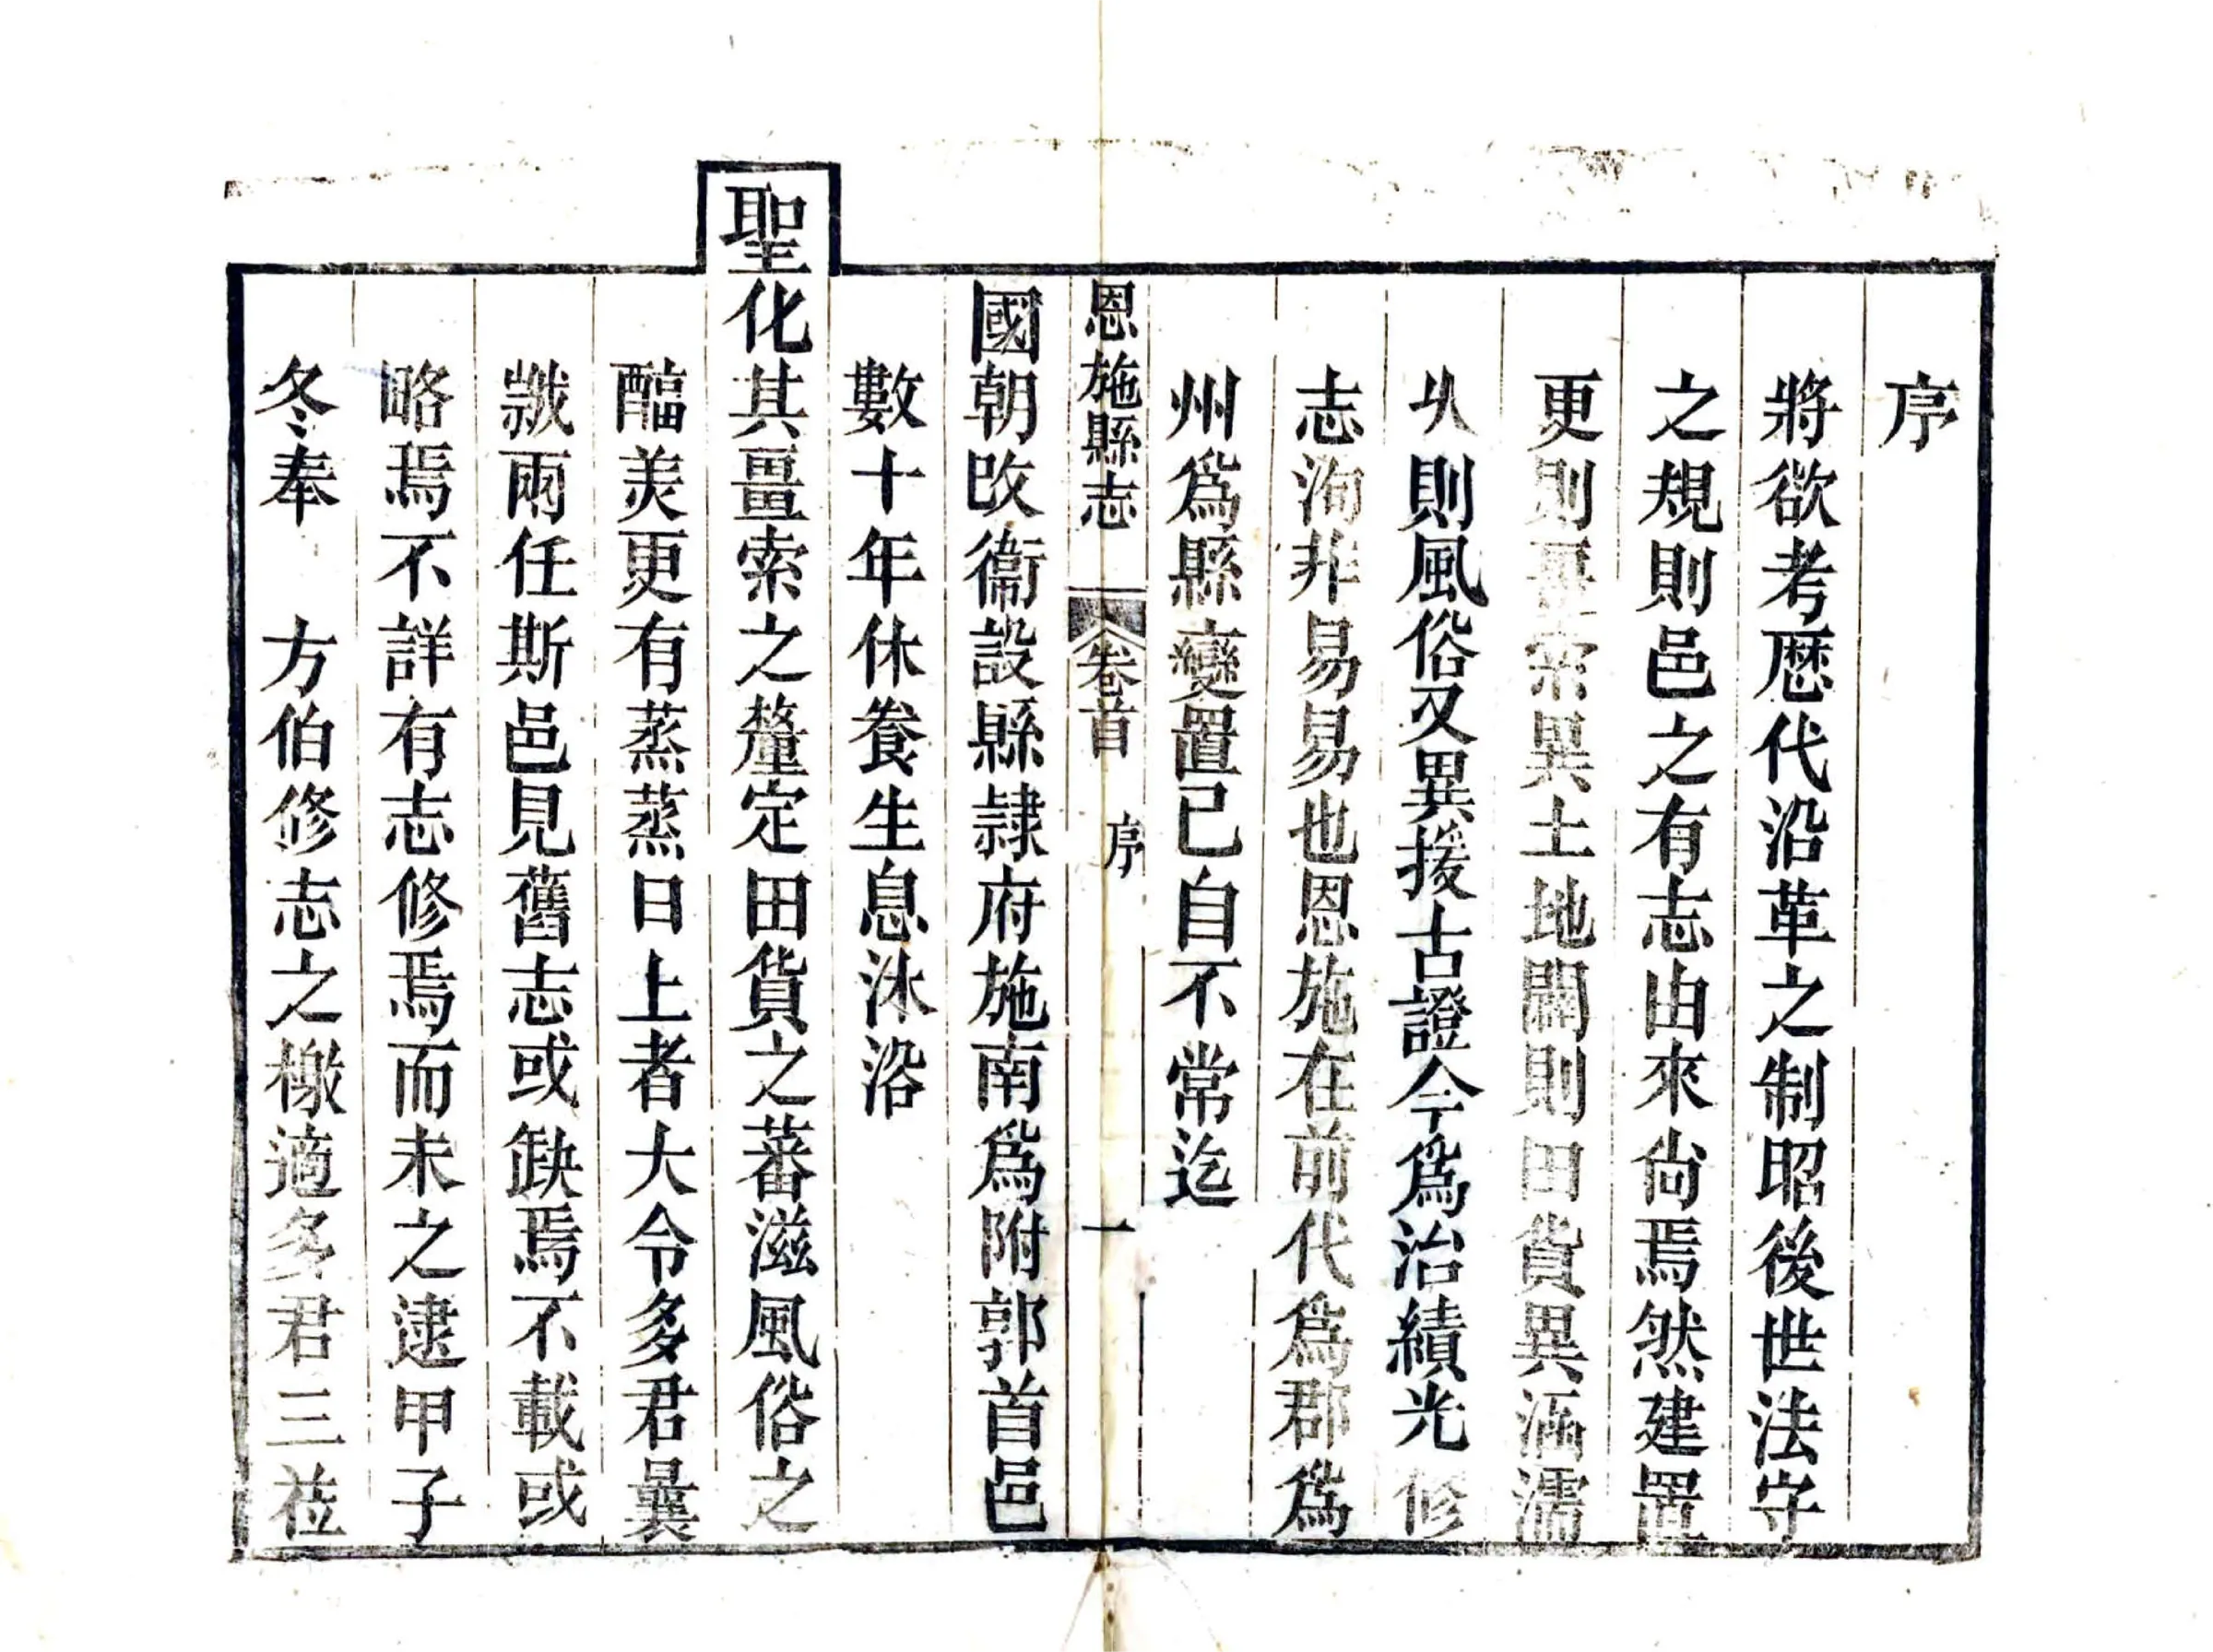 序
將欲考歷代沿革之制昭後世法守
之規則邑之有志由來尙焉然建置
更則疆索異土地闢則田貨異涵濡
久則風俗又異援古證今爲治績光修
志洵非易易也恩施在前代爲郡爲
州爲縣變置已自不常迄
恩施縣志 卷首 序 一
國朝改衞設縣隷府施南爲附郭首邑
數十年休養生息沐浴
聖化其畺索之釐定田貨之蕃滋風俗之
醖美更有蒸蒸日上者大令多君曩
歲兩任斯邑見舊志或缺焉不載或
略焉不詳有志修焉而未之逮甲子
冬奉 方伯修志之檄適多君三莅